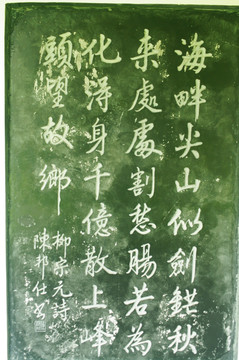 海畔尖山似劍鋩秋
來處處割愁腸若為
化得身千億散上峰
頭望故鄉
柳宗元詩
陳邦仕書